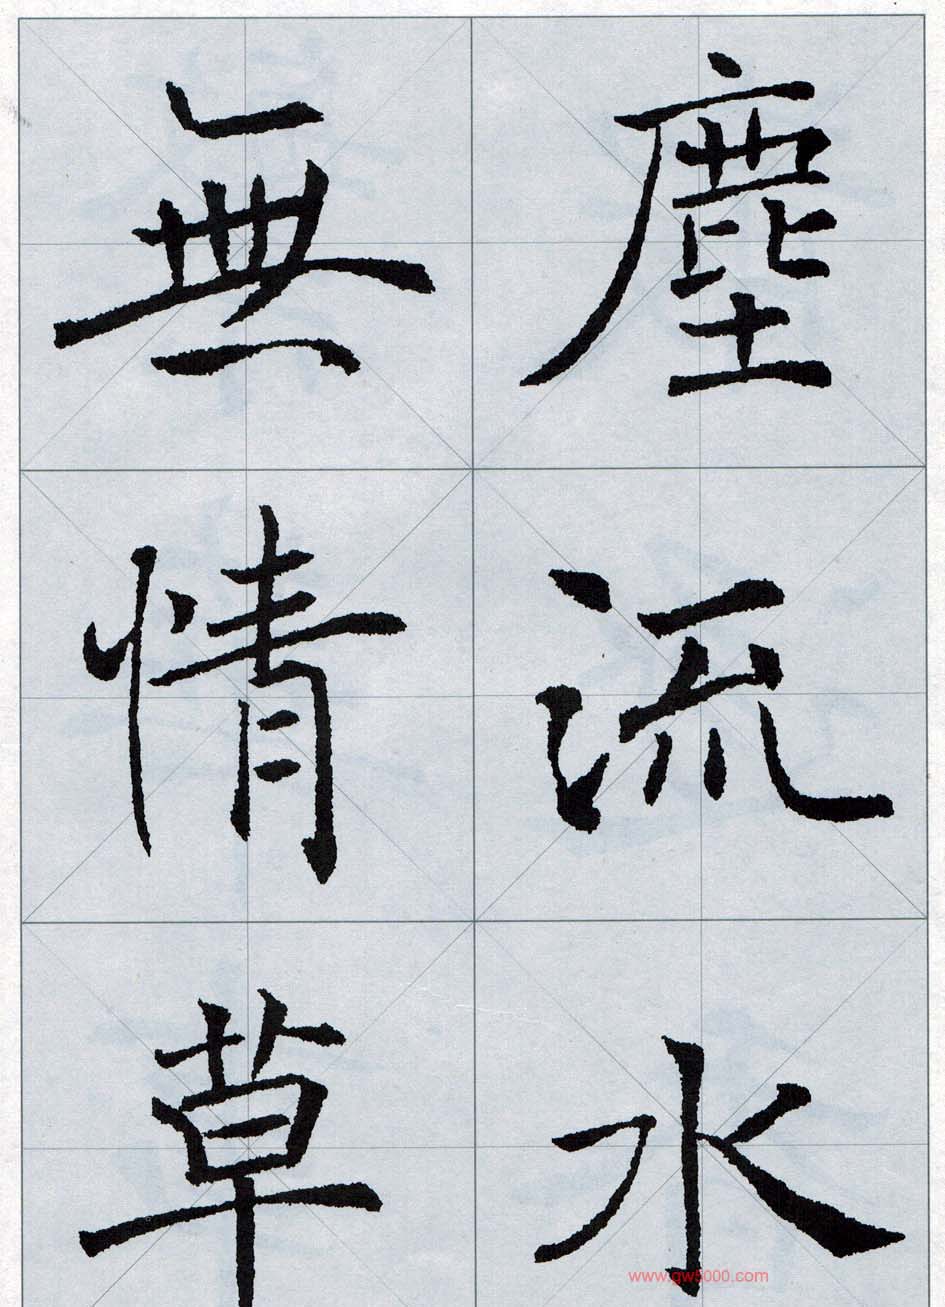 塵流水
無情草
www.gw5000.com